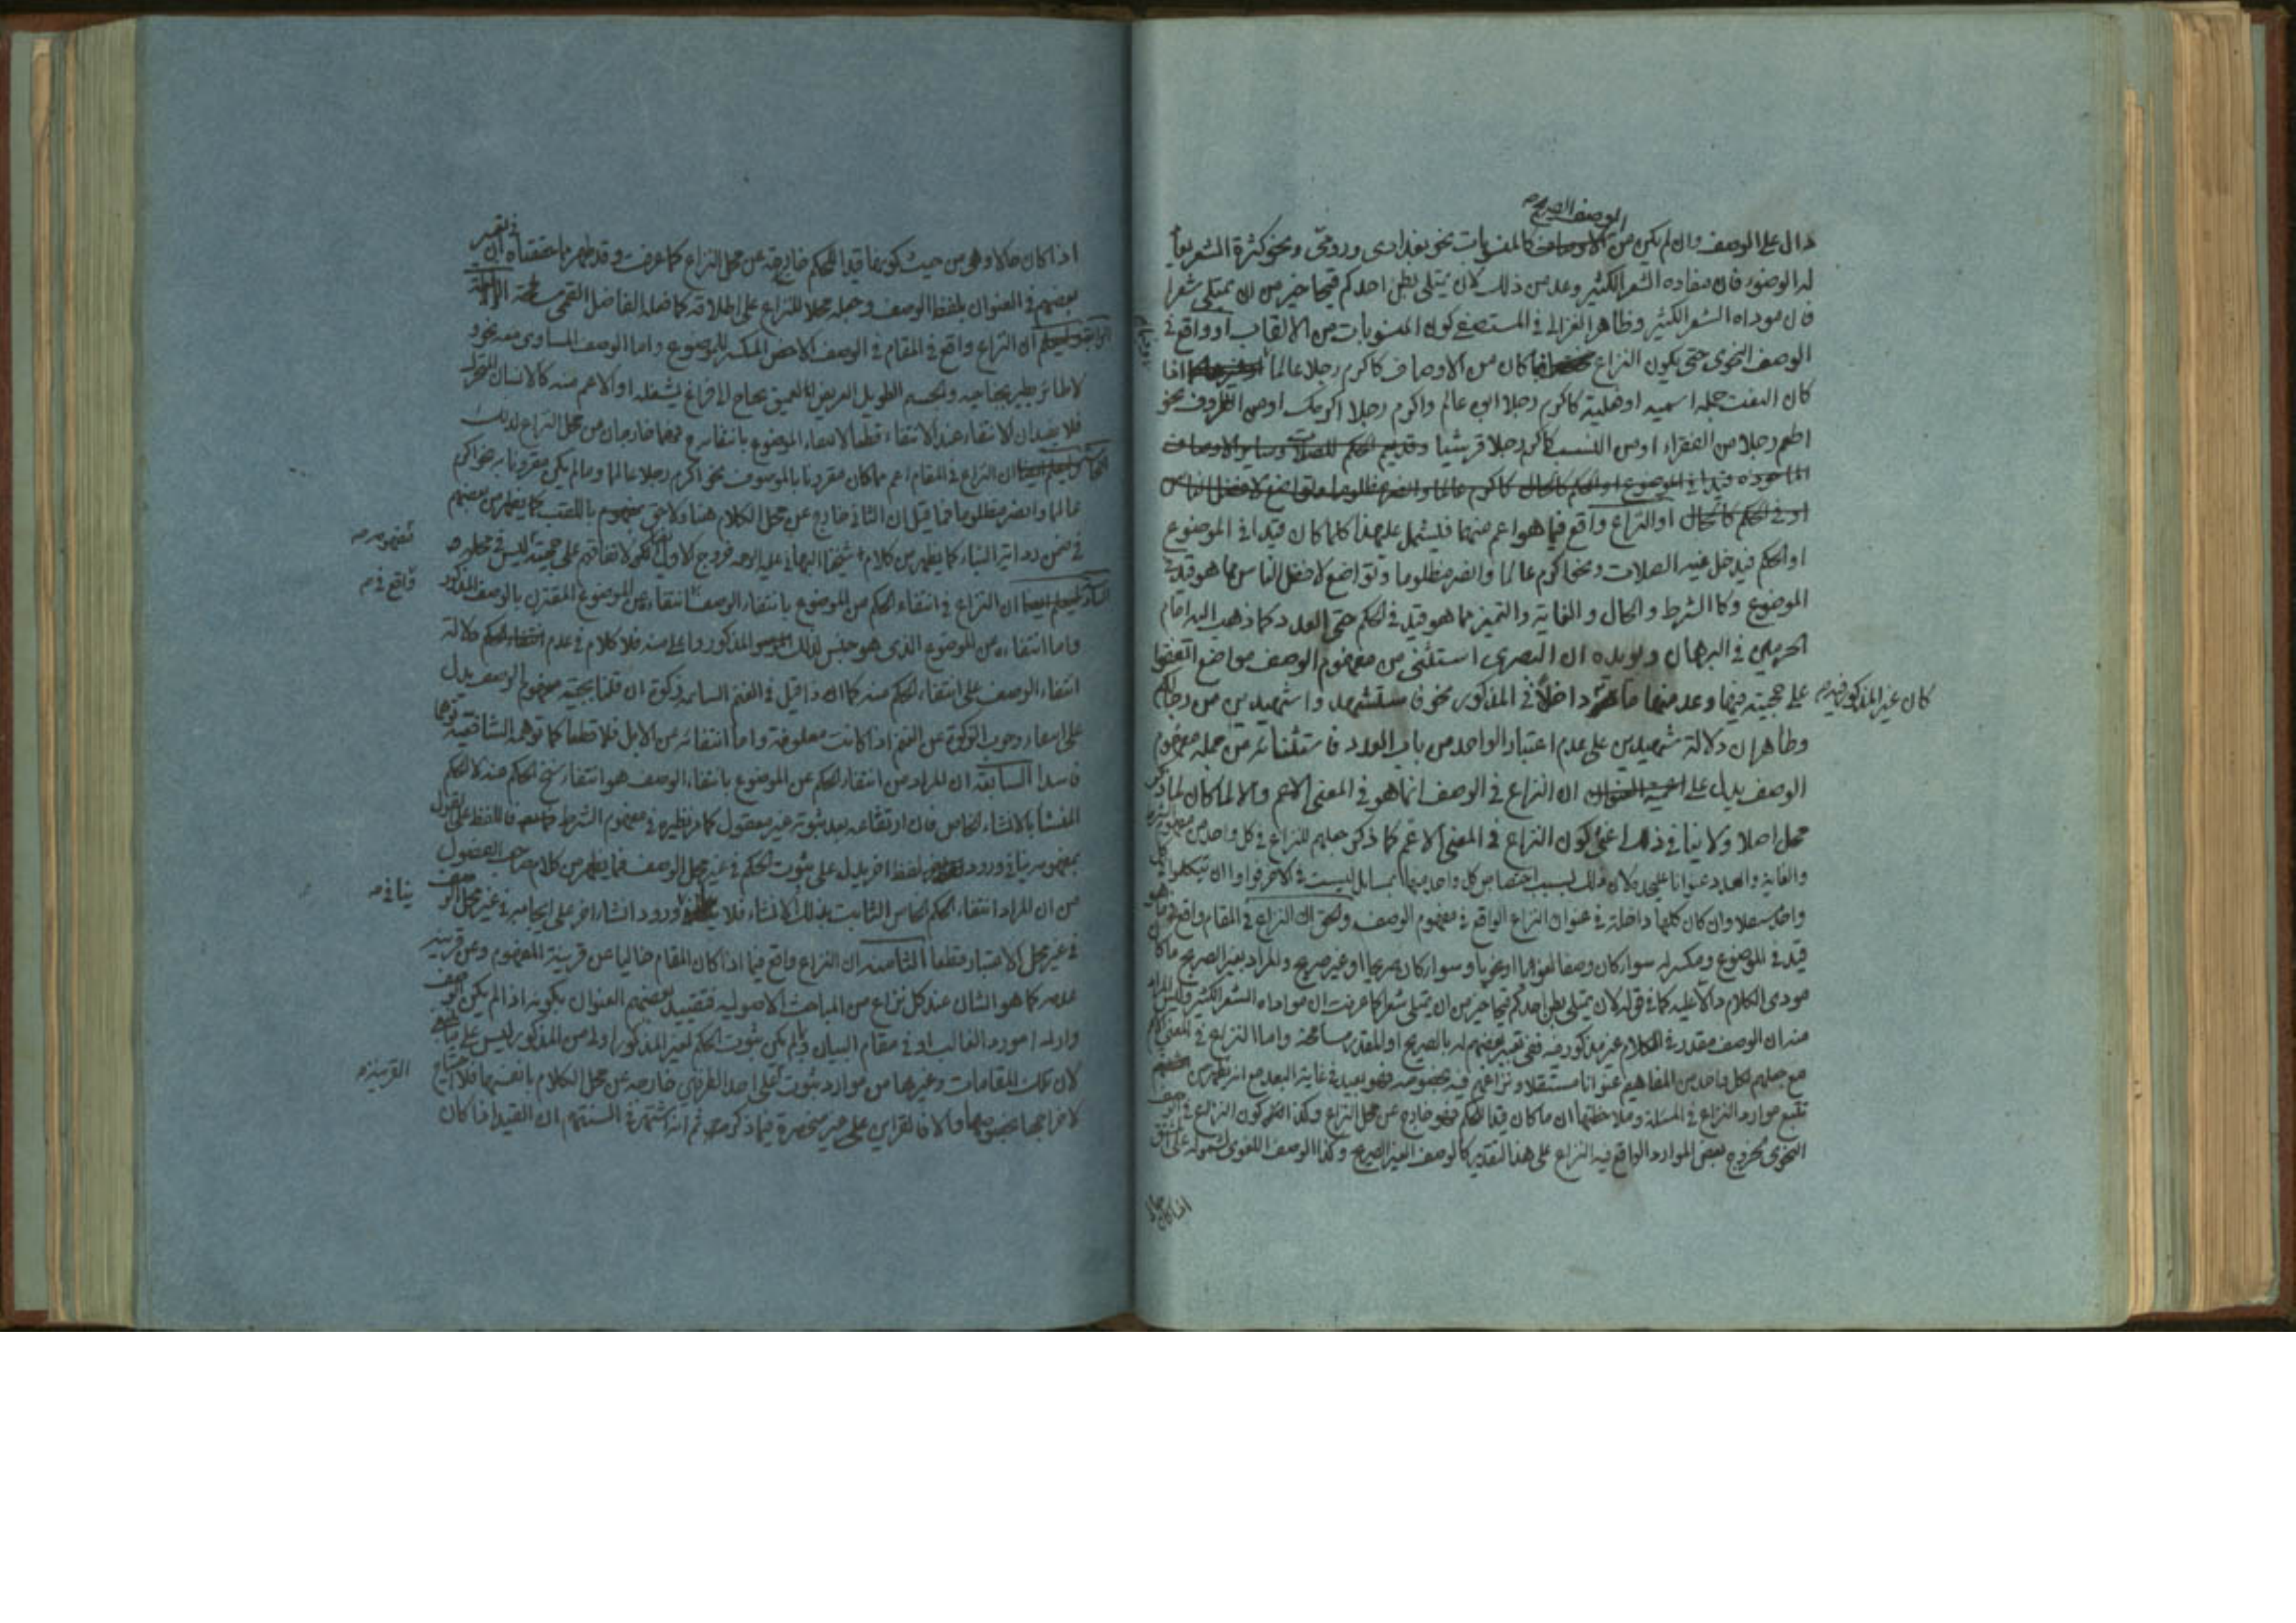 الوصف الصريح
دال على الوصف وان لم يكن من الاوصاف كالمنسوبات نحو بغدادى ورومى ونحو كثرة الشعر
له الوضوء فان مفاده الشعر الكثير وعد من ذلك لان يمتلى بطن احدكم قيحا خير من ان يمتلى شعرا
فان موداه الشعر الكثير وظاهر الغزالى في المستصفى كون المنسوبات من الالقاب او واقع في
الوصف النحوى حتى يكون النزاع فيما كان من الاوصاف كاكرم رجلا عالما اذا
كان النعت جملة اسمية او فعلية كاكرم رجلا ابوه عالم واكرم رجلا اكرمك او من الظروف نحو
اطعم رجلا من الفقراء او من النسب كاكرم رجلا قرشيا
الماخوذة قيدا في الموضوع او الحكم كالحال كاكرم عالما وانصر مظلوما وتواضع لافضل الناس
او في الحكم كالحال او النزاع واقع فيما هو اعم منهما فليشمل على هذا كلما كان قيدا في الموضوع
او الحكم فيدخل فيه الصلات ونحو اكرم عالما وانصر مظلوما وتواضع لافضل الناس مما هو قيد في
الموضوع وكالشرط والحال والغاية والتميز مما هو قيد في الحكم حتى العدد كما ذهب اليه امام
الحرمين في البرهان ويويده ان البصرى استثنى من مفهوم الوصف مواضع اتفقوا
على حجيته فيها وعد منها ما داخلا في المذكور نحو فاستشهدوا شهيدين من رجالكم
كان غير المذكور فيه
وظاهر ان دلالة شهيدين على عدم اعتبار الواحد من باب العدد فاستثنائه من جملة مفهوم
الوصف يدل على ان النزاع في الوصف انما هو في المعنى الاعم والا لما كان لما ذكر
محل اصلا ولا ينافي ذلك اعنى كون النزاع في المعنى الاعم كما ذكر جعلهم للنزاع في كل واحد من مفهوم الشرط
والغاية والعدد عنوانا عليحدة لان ذلك بسبب اختصاص كل واحد منها بمسايل ليست في الاخر فارادوا ان يتكلموا في كل
واحد مستقلا وان كان كلها داخلة في عنوان النزاع الواقع في مفهوم الوصف والحق ان النزاع في المقام واقع فيما هو
قيد في الموضوع ومكسر له سواء كان وصفا لغويا او نحويا وسواء كان صريحا او غير صريح والمراد بغير الصريح ما كان
مودى الكلام دالا عليه كما في قوله لان يمتلى بطن احدكم قيحا خير من ان يمتلى شعرا كما عرفت ان موداه الشعر الكثير وليس المراد
منه ان الوصف مقدر في الكلام غير مذكور فيه ففى تعبير بعضهم له بالصريح او المقدر مسامحة واما النزاع في المعنى الاعم
مع جعلهم لكل واحد من المفاهيم عنوانا مستقلا ونزاعهم فيه بخصوصه فهو بعيد في غاية البعد مع انه يظهر من
تتبع موارد النزاع في المسئلة وملاحظتها ان ما كان قيدا للحكم فهو خارج عن محل النزاع وكذا القول بكون النزاع في الوصف
النحوى لخروج بعض الموارد الواقع فيه النزاع على هذا التقدير كالوصف الغير الصريح وكذا الوصف اللغوى لشموله على المشتق
اذا كان حالا
اذا كان حالا وهى من حيث كونها قيدا للحكم خارجة عن محل النزاع كما عرفت وقد ظهر مما حققناه ان في تعبير
بعضهم في العنوان بلفظ الوصف وجعله محلا للنزاع على اطلاقه كما فعله الفاضل القمى مسامحة
ان النزاع واقع في المقام في الوصف الاخص المكسر للموضوع واما الوصف المساوى معه نحو
لا طائر يطير بجناحيه والجسم الطويل العريض العميق يحتاج الى فراغ يشغله او الاعم منه كالانسان المتحرك
فلا يفيدان الانتفاء عند الانتفاء قطعا لانتفاء الموضوع بانتفائه فهما خارجان من محل النزاع لذلك
ان النزاع في المقام اعم مما كان مقرونا بالموصوف نحو اكرم رجلا عالما وما لم يكن مقرونا به نحو اكرم
عالما وانصر مظلوما فما قيل ان الثانى خارج عن محل الكلام هنا ولاحق بمفهوم باللقب كما يظهر من بعضهم
في ضمن رد اتير النبا كما يظهر من كلام شيخنا البهائى عليه الرحمه لاتفاقهم على حجيته ليس في محله
مفهومه
السادسة ان النزاع في انتفاء الحكم من الموضوع بانتفاء الوصف انتفاءه عن الموضوع المقترن بالوصف المذكور
واقع في
واما انتفاءه من الموضوع الذى هو جنس لذلك المذكور واعلى منه فلا كلام في عدم دلالة
انتفاء الوصف على انتفاء الحكم عنه كما اذا قيل في الغنم السائمه زكوة ان قلنا بحجية مفهوم الوصف يدل
على انتفاء وجوب الزكوة عن الغنم اذا كانت معلوفة واما انتفائه من الابل فلا قطعا كما توهمه الشافعية توهما
فاسدا السابعة ان المراد من انتفاء الحكم عن الموضوع بانتفاء الوصف هو انتفاء سنخ الحكم عنه لا الحكم
المنشأ بالانشاء الخاص فان ارتفاعه بعد ثبوته غير معقول كما مر نظيره في مفهوم الشرط فاللفظ على القول
بمفهومه ينافي ورود لفظ اخر يدل على ثبوت الحكم في غير محل الوصف فما يظهر من كلام صاحب الفصول
من ان المراد انتفاء الحكم الخاص الثابت بذلك الانشاء فلا ورود انشاء اخر على ايجابه في غير محل الوصف
ينافي
في غير محل الاعتبار قطعا الثامنة ان النزاع واقع فيما اذا كان المقام خاليا عن قرينة المفهوم وعن قرينة
عدمه كما هو الشان عند كل نزاع من المباحث الاصوليه فتقييد بعضهم العنوان بكونه اذا لم يكن الوصف
واردا مورد الغالب او في مقام البيان ولم يكن ثبوت الحكم لغير المذكور اولى من المذكور ليس على ما ينبغى
لان تلك المقامات وغيرها من موارد ثبوت القرينة على احد الطرفين خارجه عن محل الكلام بانفسها فلا احتياج
القرينة
لاخراجها بخصوصها والا فالقراين على غير منحصرة فيما ذكر ثم انه اشتهر في السنتهم ان القيد اذا كان